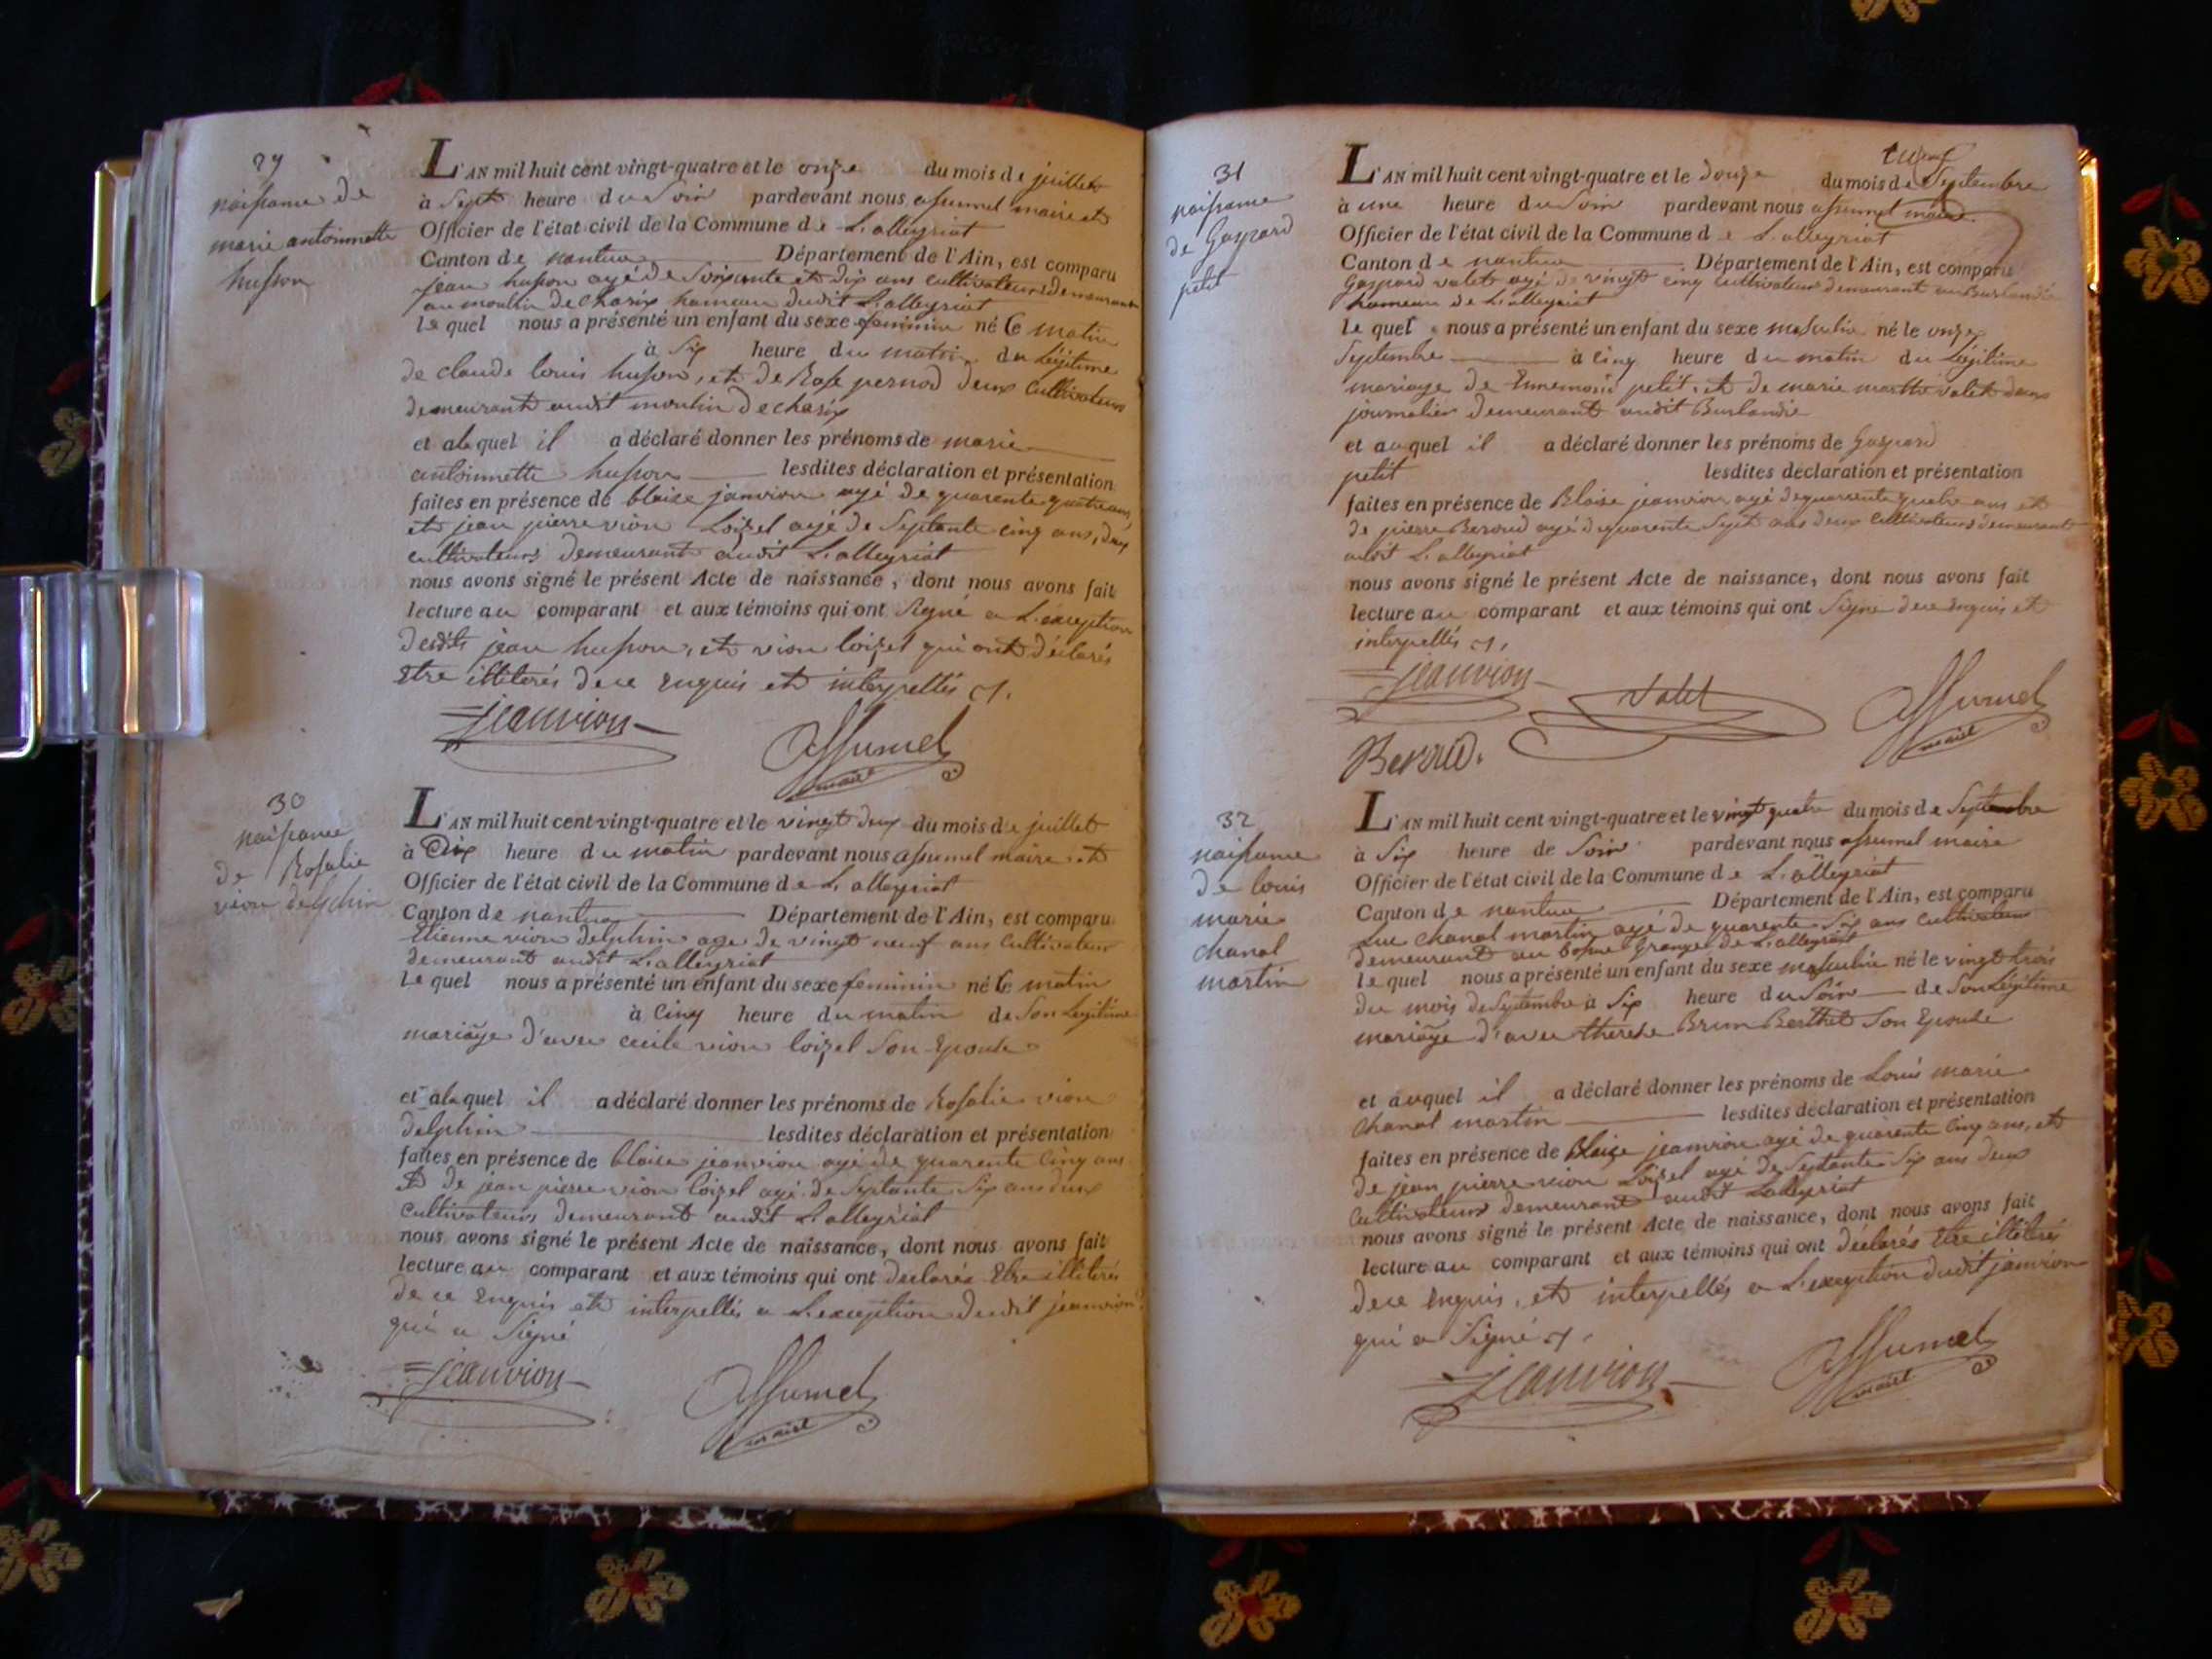 29
naissance de
marie antoinette
husson
L'AN mil huit cent vingt-quatre et le onze du mois de juillet
à Sept heure du Soir pardevant nous assumel maire et
Officier de l'état civil de la Commune de L'alleyriat
Canton de nantua Département de l'Ain, est comparu
jean husson agé de Soixante et dix ans cultivateur demeurant
au moulin de charix hameau dudit L'alleyriat
le quel nous a présenté un enfant du sexe feminin né le matin
à Six heure du matin du Légitime
de claude louis husson, et de Rose pernod deux cultivateurs
demeurant audit moulin de charix
et alaquel il a déclaré donner les prénoms de marie
antoinette husson lesdites déclaration et présentation
faites en présence de blaise janvion agé de quarente quatre ans,
et jean pierre vion Loizel agé de Septante cinq ans, deux
cultivateurs demeurant audit L'alleyriat
nous avons signé le présent Acte de naissance, dont nous avons fait
lecture au comparant et aux témoins qui ont Signé a L'exception
desdits jean husson, et vion loizel qui ont déclarés
Etre illiterés de ce Enquis et interpellés
=jeanvion
assumel
maire
30
naissance
de Rosalie
vion delphin
L'AN mil huit cent vingt-quatre et le vingt deux du mois de juillet
à Dix heure du matin pardevant nous assumel maire et
Officier de l'état civil de la Commune de L'alleyriat
Canton de nantua Département de l'Ain, est comparu
Etienne vion delphin age de vingt neuf ans Cultivateur
demeurant audit L'alleyriat
le quel nous a présenté un enfant du sexe feminin né le matin
à Cinq heure du matin de Son Légitime
mariage d'avec cecile vion loizel Son Epouse
et alaquel il a déclaré donner les prénoms de Rosalie vion
delphin lesdites déclaration et présentation
faites en présence de blaise jeanvion agé de quarente Cinq ans
Et de jean pierre vion loizel agé de Septante Six ans deux
Cultivateurs demeurant audit L'alleyriat
nous avons signé le présent Acte de naissance, dont nous avons fait
lecture au comparant et aux témoins qui ont declarés Etre illiterés
de ce Enquis et interpellés a L'exception dudit jeanvion
qui a Signé
=jeanvion
assumel
maire
31
naissance
de Gaspard
petit
L'AN mil huit cent vingt-quatre et le douze du mois de Septembre
à une heure du Soir pardevant nous assumel maire
Officier de l'état civil de la Commune de L'alleyriat
Canton de nantua Département de l'Ain, est comparu
Gaspard valet agé de vingt cinq Cultivateur demeurant au Burlandie
hameau de L'alleyriat
le quel nous a présenté un enfant du sexe masculin né le onze
Septembre à Cinq heure du matin du Légitime
mariage de Ennemond petit, et de marie marthe valet deux
journalier demeurant audit Burlandie
et auquel il a déclaré donner les prénoms de Gaspard
petit lesdites déclaration et présentation
faites en présence de Blaise jeanvion agé de quarente quatre ans et
de pierre Beroud agé de quarente Sept ans deux Cultivateurs demeurant
audit L'alleyriat
nous avons signé le présent Acte de naissance, dont nous avons fait
lecture au comparant et aux témoins qui ont Signe de ce Enquis et
interpellés
=jeanvion
Valet
assumel
maire
Beroud.
32
naissance
de louis
marie
chanal
martin
L'AN mil huit cent vingt-quatre et le vingt quatre du mois de Septembre
à Six heure de Soir pardevant nous assumel maire
Officier de l'état civil de la Commune de L'alleyriat
Canton de nantua Département de l'Ain, est comparu
Luc chanal martin agé de quarente Six ans cultivateur
demeurant au Grange de L'alleyriat
le quel nous a présenté un enfant du sexe masculin né le vingt trois
du mois de Septembre à Six heure du Soir de Son Légitime
mariage d'avec therese Brun Berthet Son Epouse
et auquel il a déclaré donner les prénoms de Louis marie
chanal martin lesdites déclaration et présentation
faites en présence de Blaise jeanvion agé de quarente Cinq ans, et
de jean pierre vion Loizel agé de Septante Six ans deux
Cultivateurs demeurant audit Lalleyriat
nous avons signé le présent Acte de naissance, dont nous avons fait
lecture au comparant et aux témoins qui ont declarés Etre illiterés
de ce Enquis, et interpellés a L'exception dudit janvion
qui a Signé
=jeanvion
assumel
maire